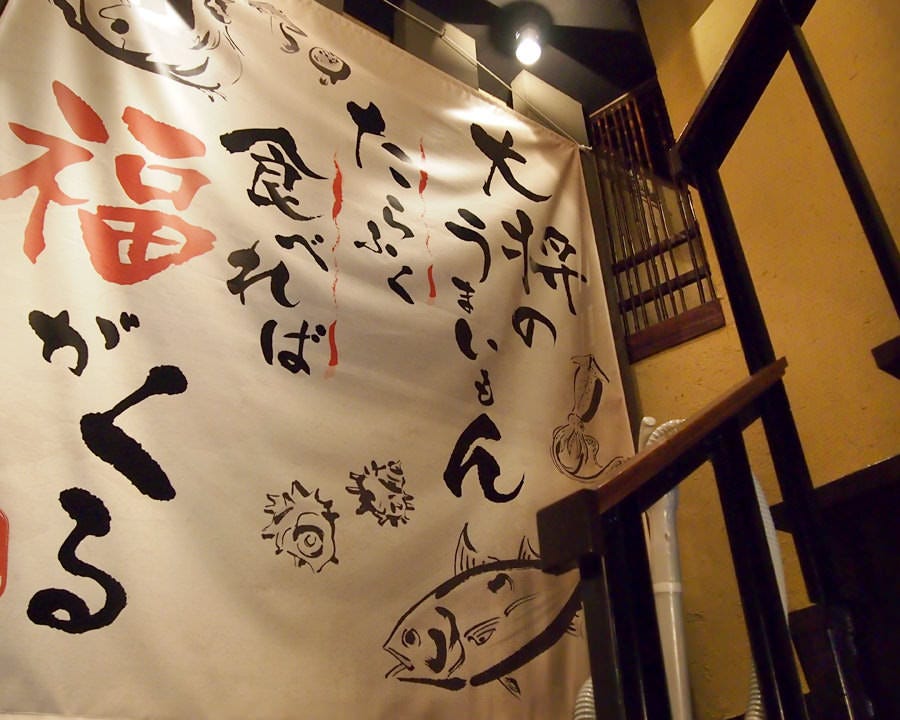 大将の
うまいもん
たらふく
食べれば
福がくる